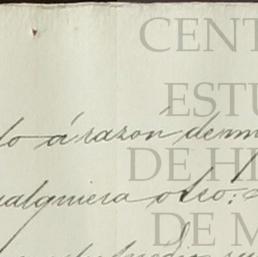 CENT
ESTU
DE HI
DE M
do á razon de un
ualquiera otro: